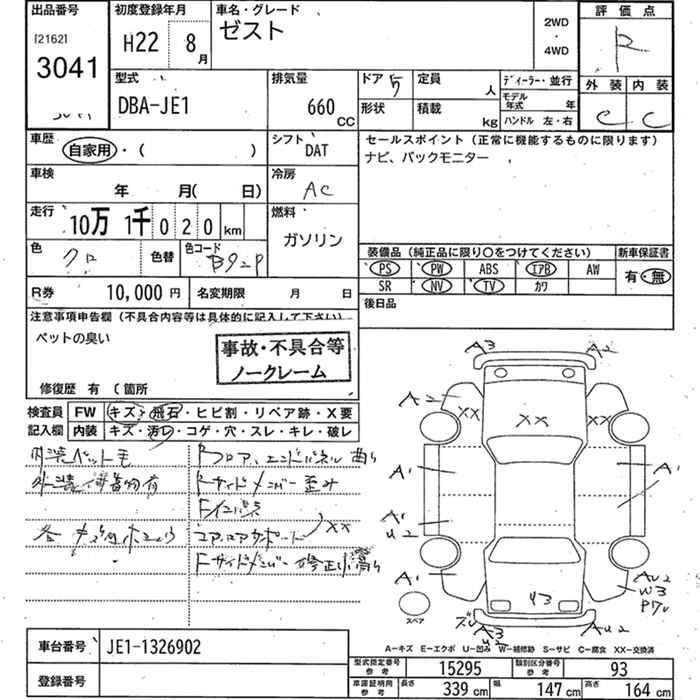 出品番号
[2162]
3041
初度登録年月
H22 8月
車名・グレード
ゼスト
2WD
・
4WD
評価点
R
外装 内装
C C
型式
DBA-JE1
排気量
660 CC
ドア 5
定員 人
形状
積載 kg
ディーラー・並行
モデル年式 年
ハンドル 左・右
車歴
自家用・( )
シフト
DAT
セールスポイント(正常に機能するものに限ります)
ナビ、バックモニター
車検
年 月( 日)
冷房
AC
走行
10万 1千 0 2 0 km
燃料
ガソリン
色
クロ
色替
色コード
B92P
装備品(純正品に限り○をつけてください)
新車保証書
PS PW ABS エアB AW
SR NV TV カワ
有・無
R券 10,000 円
名変期限 月 日
後日品
注意事項申告欄(不具合内容等は具体的に記入して下さい)
ペットの臭い
事故・不具合等
ノークレーム
修復歴 有 (箇所
検査員 FW キズ・飛石・ヒビ割・リペア跡・X要
記入欄 内装 キズ・汚レ・コゲ・穴・スレ・キレ・破レ
内装ペット毛
外装付着物有
Rフロア、エンドパネル曲り
Rサイドメンバー歪み
コアロアサポート XX
A3 A2
A2 XX XX XX
A1 A1
A1
U2
A1
U3
AU2
W3
A3
U2
AU2
スペア
A-キズ E-エクボ U-凹み W-補修跡 S-サビ C-腐食 XX-交換済
車台番号 JE1-1326902
登録番号
型式指定番号 参考 15295
類別区分番号 参考 93
車庫証明用 参考 長さ 339 cm 幅 147 cm 高さ 164 cm